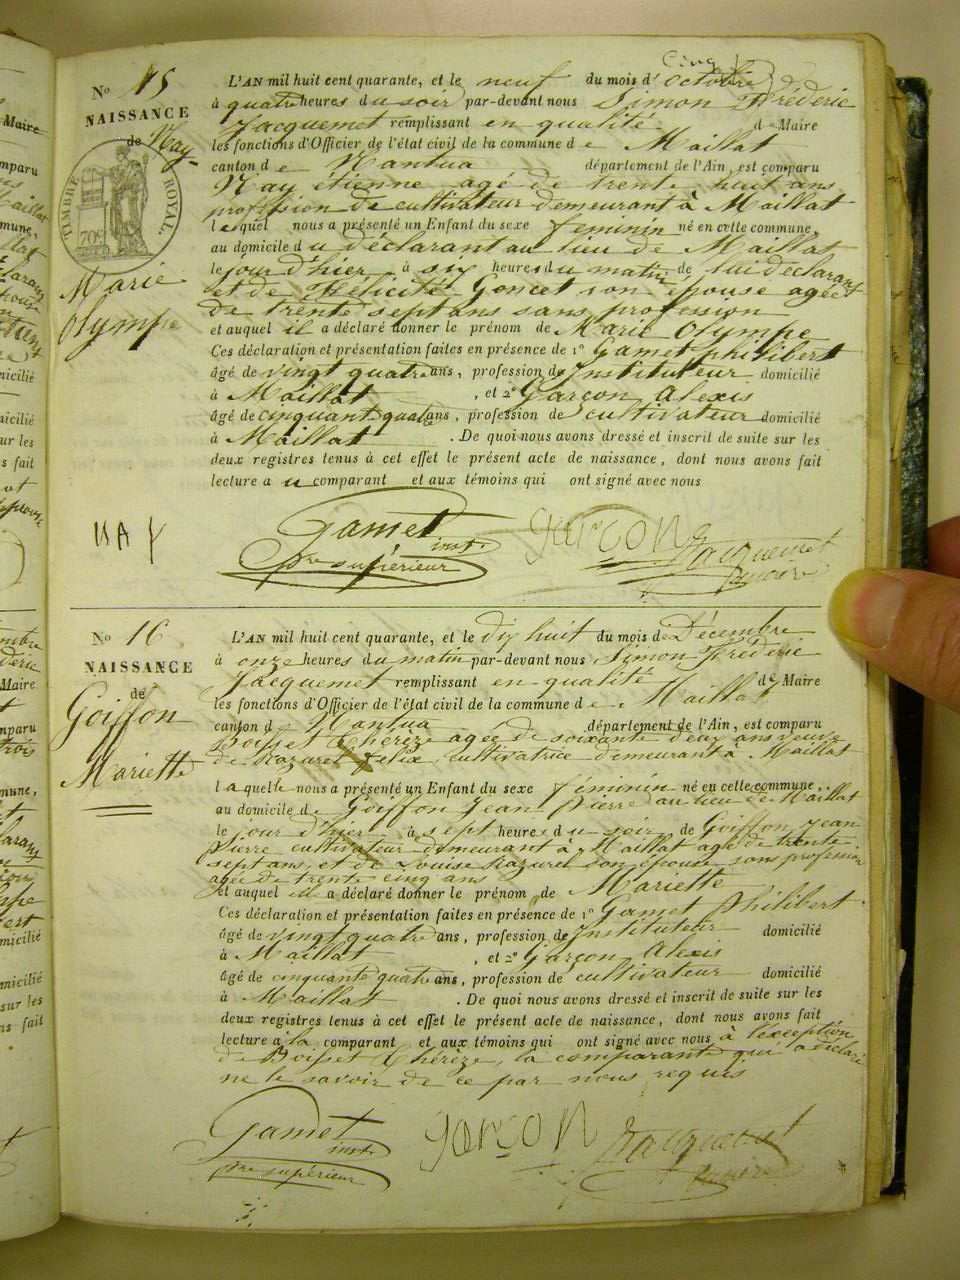 Maire
No 15
NAISSANCE
de Nay
TIMBRE ROYAL
70c
Marie
Olympe
L'AN mil huit cent quarante, et le neuf du mois d'octobre
à quatre heures du soir par-devant nous Simon Fréderic
Jacquemet remplissant en qualité de Maire
les fonctions d'Officier de l'état civil de la commune de Maillat
canton de Nantua département de l'Ain, est comparu
Nay étienne agé de trente huit ans
profession de cultivateur demeurant à Maillat
lesquel nous a présenté un Enfant du sexe feminin né en cette commune,
au domicile du déclarant au lieu de Maillat
le jour d'hier à six heures du matin de lui déclarant
et de Félicité Goncet son épouse agée
de trente sept ans sans profession
et auquel il a déclaré donner le prénom de Marie Olympe
Ces déclaration et présentation faites en présence de 1° Gamet philibert
âgé de vingt quatre ans, profession de Instituteur domicilié
à Maillat, et 2° Garçon Alexis
âgé de cinquant quatre ans, profession de cultivateur domicilié
à Maillat. De quoi nous avons dressé et inscrit de suite sur les
deux registres tenus à cet effet le présent acte de naissance, dont nous avons fait
lecture au comparant et aux témoins qui ont signé avec nous
NAY
Gamet
inst.
pre supérieur
garçon
Jacquemet
maire
No 16
NAISSANCE
de
Goiffon
Mariette
L'AN mil huit cent quarante, et le dix huit du mois de Décembre
à onze heures du matin par-devant nous Simon Fréderic
Jacquemet remplissant en qualité de Maire
les fonctions d'Officier de l'état civil de la commune de Maillat
canton de Nantua département de l'Ain, est comparu
Boisset Thérèze agée de soixante deux ans veuve
de Nazaret felix cultivatrice demeurant à Maillat
laquelle nous a présenté un Enfant du sexe féminin né en cette commune,
au domicile de Goiffon Jean Pierre au lieu de Maillat
le jour d'hier à sept heures du soir de Goiffon Jean
Pierre cultivateur demeurant à Maillat agé de trente
sept ans, et de Louise Nazaret son épouse sans profession
agée de trente cinq ans
et auquel il a déclaré donner le prénom de Mariette
Ces déclaration et présentation faites en présence de 1° Gamet Philibert
âgé de vingt quatre ans, profession de Instituteur domicilié
à Maillat, et 2° Garçon Alexis
âgé de cinquante quatre ans, profession de cultivateur domicilié
à Maillat. De quoi nous avons dressé et inscrit de suite sur les
deux registres tenus à cet effet le présent acte de naissance, dont nous avons fait
lecture à la comparant et aux témoins qui ont signé avec nous à l'exception
de Boisset Thérèze, la comparante qui a déclaré
ne le savoir de ce par nous requis
Gamet
inst.
pre supérieur
garçon
Jacquemet
maire